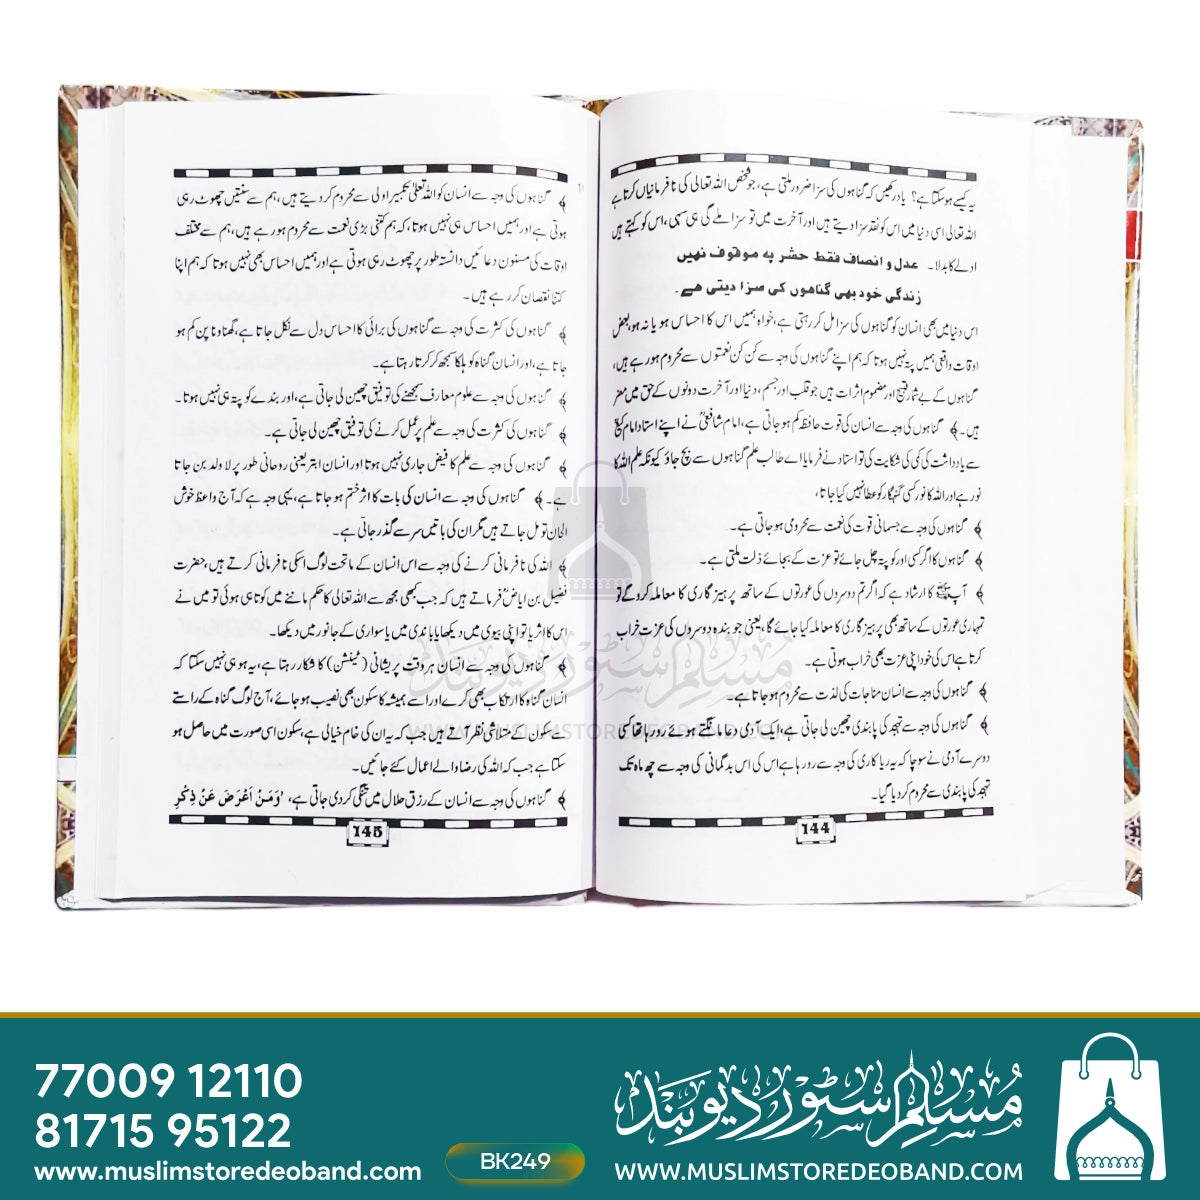 یہ کیسے ہوسکتا ہے؟ یاد رکھیں کہ گناہوں کی سزا ضرور ملتی ہے، جو شخص اللہ تعالی کی نافرمانیاں کرتا ہے
اللہ تعالی اسی دنیا میں اس کو نقد سزا دیتے ہیں اور آخرت میں تو سزا ملے گی ہی سہی، اس کو کہتے ہیں
ادلے کا بدلا۔ عدل و انصاف فقط حشر پہ موقوف نہیں
زندگی خود بھی گناہوں کی سزا دیتی ھے۔
اس دنیا میں بھی انسان کو گناہوں کی سزا مل کر رہتی ہے، خواہ ہمیں اس کا احساس ہو یا نہ ہو، بعض
اوقات واقعی ہمیں پتہ نہیں ہوتا کہ ہم اپنے گناہوں کی وجہ سے کن کن نعمتوں سے محروم ہو رہے ہیں،
گناہوں کے بے شمار قبیح اور مضموم اثرات ہیں جو قلب اور جسم، دنیا اور آخرت دونوں کے حق میں مضر
ہیں۔﴾ گناہوں کی وجہ سے انسان کی قوت حافظہ کم ہو جاتی ہے، امام شافعیؒ نے اپنے استاد امام وکیع
سے یادداشت کی کمی کی شکایت کی تو استاد نے فرمایا اے طالب علم گناہوں سے بچ جاؤ کیونکہ علم اللہ کا
نور ہے اور اللہ کا نور کسی گنہگار کو عطا نہیں کیا جاتا،
﴾ گناہوں کی وجہ سے جسمانی قوت کی نعمت سے محرومی ہو جاتی ہے۔
﴾ گناہوں کا اگر کسی اور کو پتہ چل جائے تو عزت کے بجائے ذلت ملتی ہے۔
﴾ آپ ﷺ کا ارشاد ہے کہ اگر تم دوسروں کی عورتوں کے ساتھ پرہیز گاری کا معاملہ کرو گے تو
تمہاری عورتوں کے ساتھ بھی پرہیز گاری کا معاملہ کیا جائے گا، یعنی جو بندہ دوسروں کی عزت خراب
کرتا ہے اس کی خود اپنی عزت بھی خراب ہوتی ہے۔
﴾ گناہوں کی وجہ سے انسان مناجات کی لذت سے محروم ہو جاتا ہے۔
﴾ گناہوں کی وجہ سے تہجد کی پابندی چھین لی جاتی ہے، ایک آدمی دعا مانگتے ہوئے رو رہا تھا کسی
دوسرے آدمی نے سوچا کہ یہ ریاکاری کی وجہ سے رو رہا ہے اس کی اس بدگمانی کی وجہ سے چھ ماہ تک
تہجد کی پابندی سے محروم کر دیا گیا۔
144
﴾ گناہوں کی وجہ سے انسان کو اللہ تعالیٰ تکبیر اولی سے محروم کر دیتے ہیں، ہم سے سنتیں چھوٹ رہی
ہوتی ہے اور ہمیں احساس ہی نہیں ہوتا، کہ ہم کتنی بڑی نعمت سے محروم ہو رہے ہیں، ہم سے مختلف
اوقات کی مسنون دعائیں دانستہ طور پر چھوٹ رہی ہوتی ہے اور ہمیں احساس بھی نہیں ہوتا کہ ہم اپنا
کتنا نقصان کر رہے ہیں۔
﴾ گناہوں کی کثرت کی وجہ سے گناہوں کی برائی کا احساس دل سے نکل جاتا ہے، گھناونا پن کم ہو
جاتا ہے، اور انسان گناہ کو ہلکا سمجھ کر کرتا رہتا ہے۔
﴾ گناہوں کی وجہ سے علوم معارف سمجھنے کی توفیق چھین لی جاتی ہے، اور بندے کو پتہ ہی نہیں ہوتا۔
﴾ گناہوں کی کثرت کی وجہ سے علم پر عمل کرنے کی توفیق چھین لی جاتی ہے۔
﴾ گناہوں کی وجہ سے علم کا فیض جاری نہیں ہوتا اور انسان ابتر یعنی روحانی طور پر لا ولد بن جاتا
ہے۔﴾ گناہوں کی وجہ سے انسان کی بات کا اثر ختم ہو جاتا ہے، یہی وجہ ہے کہ آج واعظ خوش
الحان تو مل جاتے ہیں مگر ان کی باتیں سر سے گذر جاتی ہے۔
﴾ اللہ کی نافرمانی کرنے کی وجہ سے اس انسان کے ماتحت لوگ اسکی نافرمانی کرتے ہیں، حضرت
فضیل بن ایاضؒ فرماتے ہیں کہ جب کبھی مجھ سے اللہ تعالی کا حکم ماننے میں کوتاہی ہوئی تو میں نے
اس کا اثر یا تو اپنی بیوی میں دیکھا یا باندی میں یا سواری کے جانور میں دیکھا۔
﴾ گناہوں کی وجہ سے انسان ہر وقت پریشانی (ٹینشن) کا شکار رہتا ہے، یہ ہو ہی نہیں سکتا کہ
انسان گناہ کا ارتکاب بھی کرے اور اسے ہمیشہ کا سکون بھی نصیب ہو جائے، آج لوگ گناہ کے راستے
سے سکون کے متلاشی نظر آتے ہیں جب کہ یہ ان کی خام خیالی ہے، سکون اسی صورت میں حاصل ہو
سکتا ہے جب کہ اللہ کی رضا والے اعمال کئے جائیں۔
﴾ گناہوں کی وجہ سے انسان کے رزق حلال میں تنگی کردی جاتی ہے، ’وَمَنْ اَعْرَضَ عَنْ ذِكْرِ
145
مسلم سٹور دیوبند
WWW.MUSLIMSTOREDEOBAND.COM
77009 12110
81715 95122
www.muslimstoredeoband.com
BK249
مُسلم سٹور دیوبند
WWW.MUSLIMSTOREDEOBAND.COM